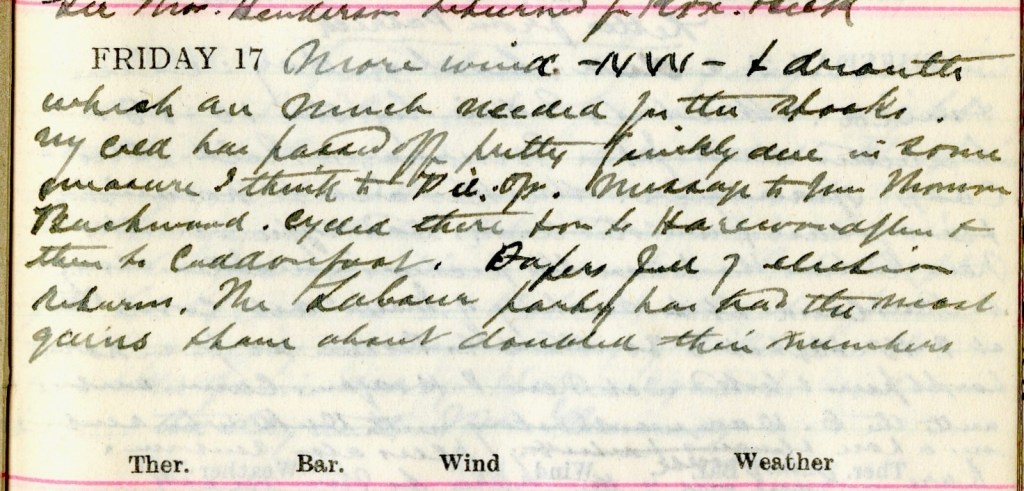 Sir Thos. Henderson returned for Rox.
FRIDAY 17 More wind. - NW - & drouth
which are much needed for the stooks.
My cold has passed off pretty quickly due in some
measure I think to Pil. Op. Message to from
Buckwood. Cycled there & on to Harewoodglen &
then to Caddonfoot. Papers full of election
returns. The Labour party has had the most
gains & have about doubled their numbers
Ther. Bar. Wind Weather